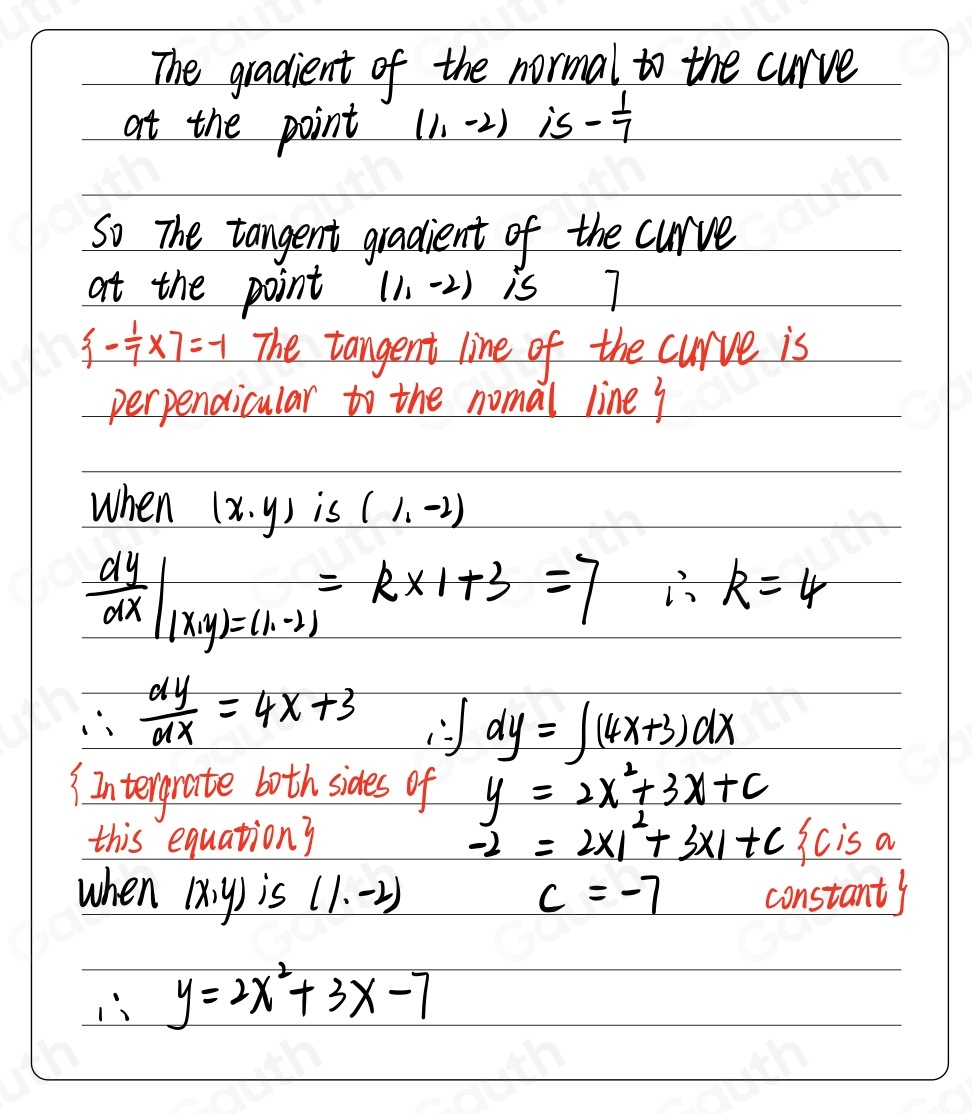 The gradient of the normal to the curve
at the point (1, -2) is -1/7
So The tangent gradient of the curve
at the point (1, -2) is 7
{-1/7×7=-1 The tangent line of the curve is
perpendicular to the nomal line}
When (x,y) is (1, -2)
dy/dx|(x,y)=(1,-2) = k×1+3 =7 ∴ k=4
∴ dy/dx = 4x+3 ∴∫dy = ∫(4x+3)dx
{Intergrate both sides of y = 2x²+3x+c
this equation} -2 = 2×1²+3×1+c {c is a
when (x,y) is (1,-2) c = -7 constant}
∴ y=2x²+3x-7
Gauth